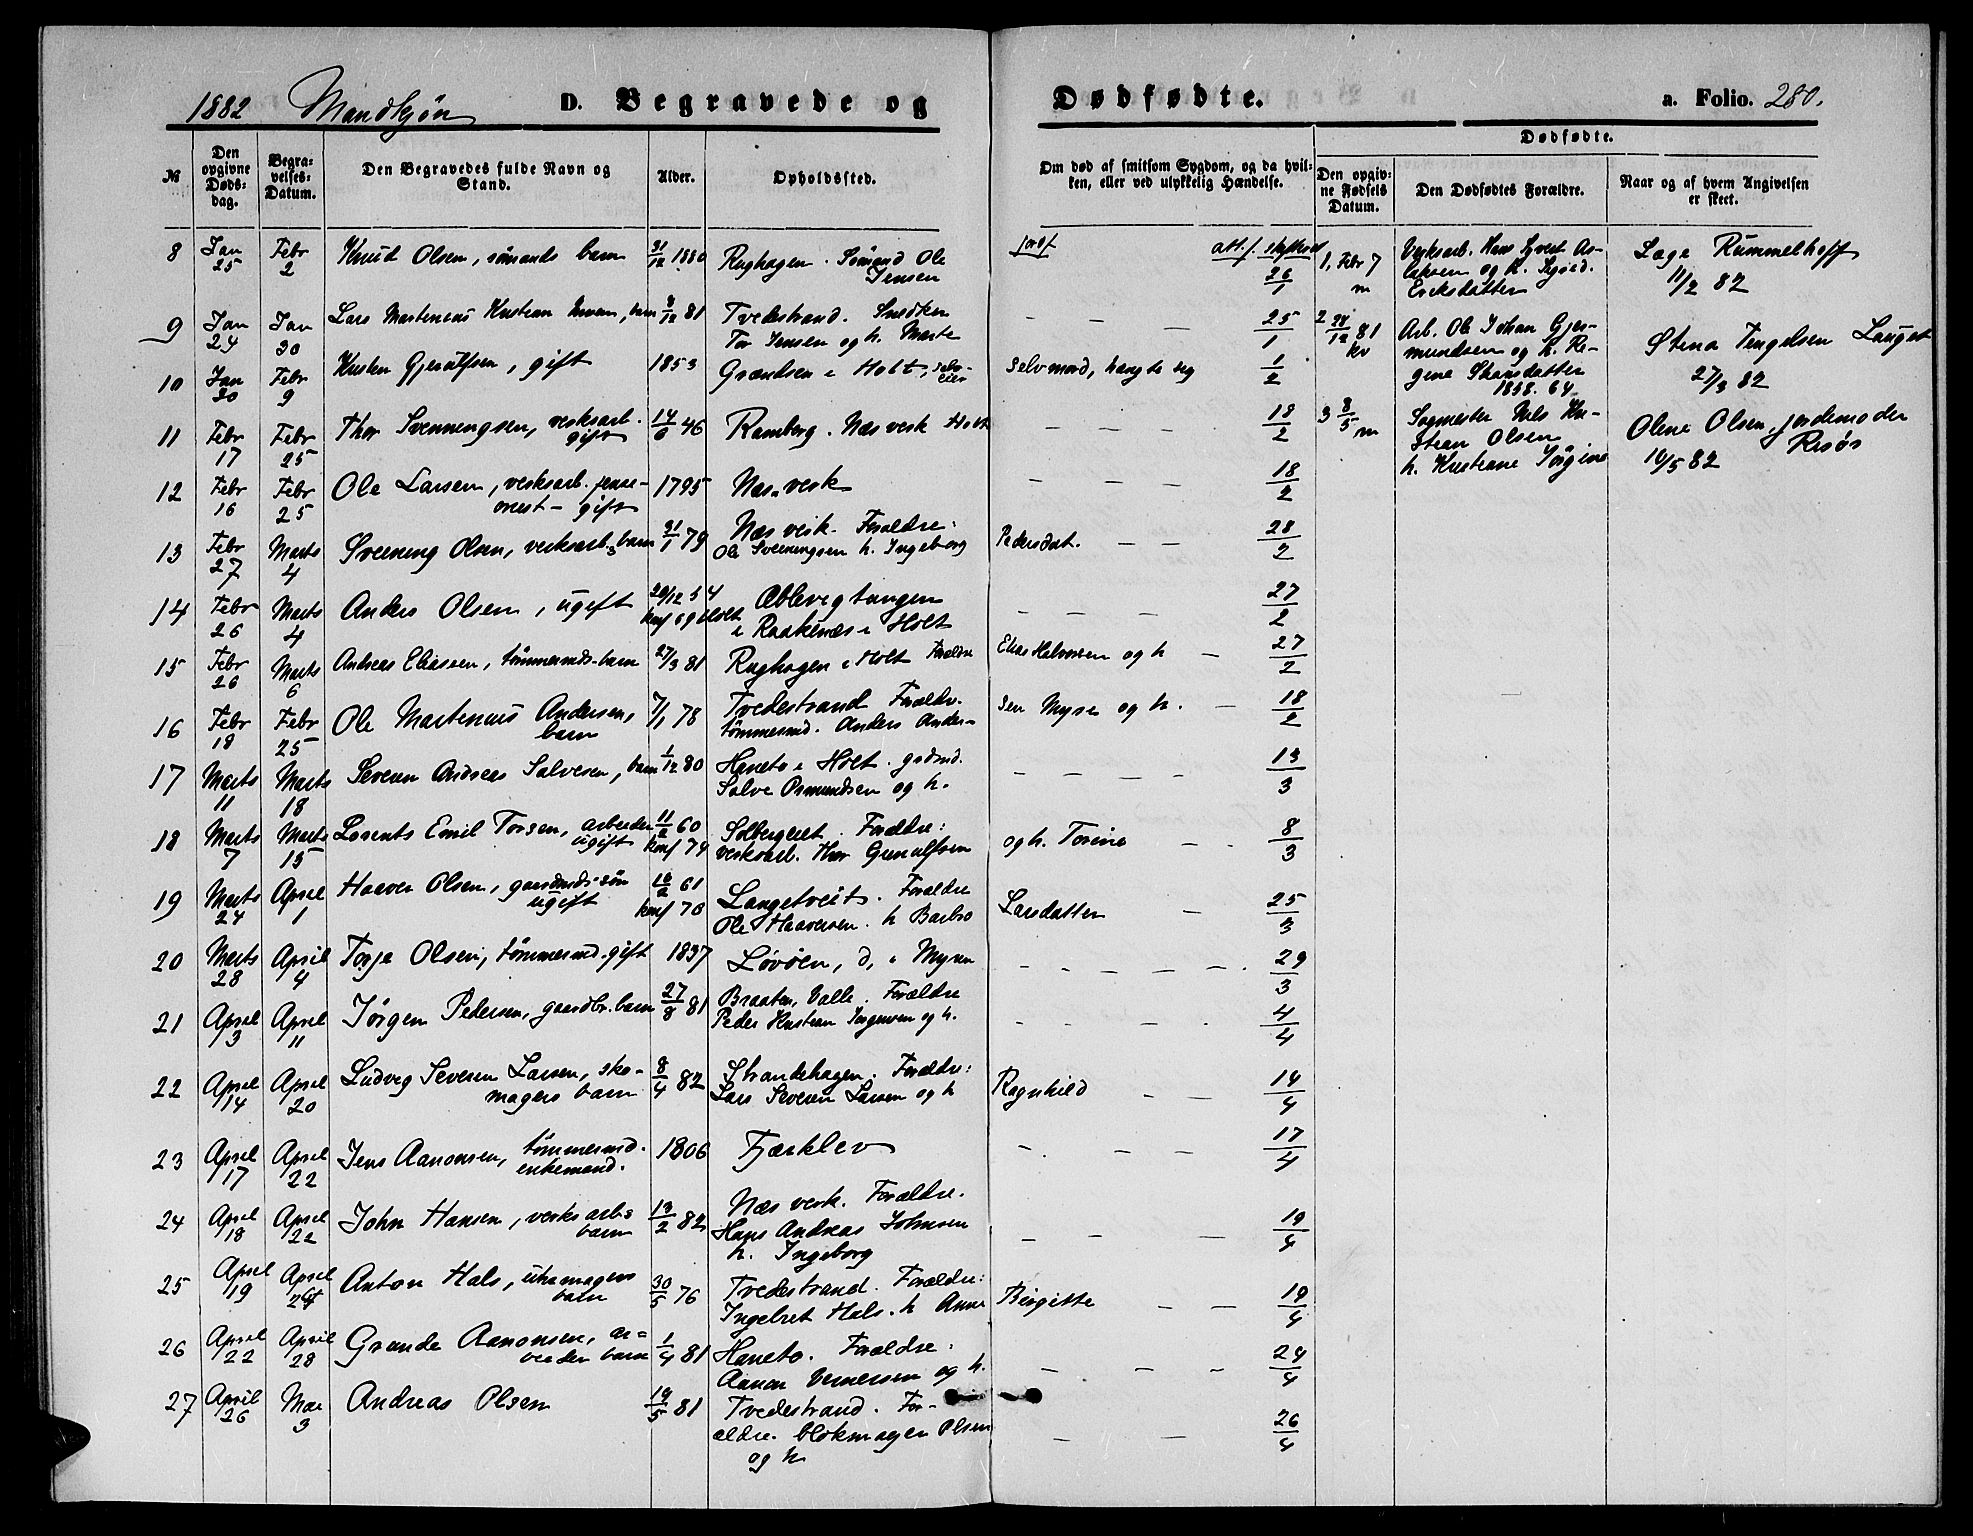 1882 Mandkjøn D. Begravede og Dødfødte. a. Folio. 280.
№ Den opgivne Døds-dag. Begra-velses-Datum. Den Begravedes fulde Navn og Stand. Alder. Opholdssted. Om død af smitsom Sygdom, og da hvil-ken, eller ved ulykkelig Hændelse. Dødfødte. Den opgiv-ne Fødsels Datum. Den Dødfødtes Forældre. Naar og af hvem Angivelsen er skeet.
8 Jan 25 Febr 2 Knud Olsen, sömands barn 31/12 1880 Rughagen. Sömand Ole Jensen att. f. skifteret 26/1
9 Jan 24 Jan 30 Lars Martenius Kristian barn 8/12 81 Tvedestrand. Snedker Tor Jensen og h. Marte — — — 25/1
10 Jan 30 Febr 9 gift 1853 Grændsen i Holt, selv-eier Selvmord, hængte sig 1/2
11 Febr 17 Febr 25 Thor Svenningsen, verksarb. gift 14/6 46 Ramberg. Næs verk Holt — — — 18/2
12 Febr 16 Febr 25 Ole Larsen, verksarb. gift 1795 Næs verk — — — 18/2
13 Febr 27 Marts 4 Svenning Olsen, verksarb. barn 31/1 79 Næs verk. Forældre: Ole Svenningsen h. Ingeborg Pedersdat. — — 28/2
14 Febr 26 Marts 4 Anders Olsen, ugift 20/12 54 konf 69 Holt Æblevigtangen i Raakenæs i Holt — — — 27/2
15 Febr 26 Marts 6 Andreas Eliassen, tömmermds. barn 27/3 81 Rughagen i Holt Forældre Elias Halvorsen og h — 27/2
16 Febr 18 Febr 25 Ole Martenius Andersen, barn 7/1 78 Tvedestrand Forældr. tömmermd. Anders Ander-sen Myre og h. — 18/2
17 Marts 11 Marts 18 Severin Andreas Salvesen, barn 1/12 80 Haneto i Holt. grdmd. Salve Osmundsen og h. — — — — 13/3
18 Marts 7 Marts 15 Lorents Emil Torsen, arbeider ugift 11/2 60 konf 74 Solbergeiet. Forældre: verksarb. Thor Gunulfsen og h. Torine — 8/3
19 Marts 24 April 1 Haaver Olsen, gaardmds. sön ugift 16/2 61 konf 76 Langetveit. Forældre Ole Haaversen. h Barbro Larsdatter — 25/3
20 Marts 28 April 4 Torje Olsen, tömmermd. gift 1837 Lövöen, d, i Myren — — — — — 29/3
21 April 3 April 11 Jörgen Pedersen, gaardbr. barn 27/8 81 Braaten, Valle. Forældre Peder Kristian Jörgensen og h. — — — 4/4
22 April 14 April 20 Ludvig Severin Larsen, sko-magers barn 8/4 82 Strandehagen. Forældre: Lars Severin Larsen og h Ragnhild — — 14/4
23 April 17 April 22 Jens Aanonsen, tömmermd. enkemand. 1806 Fjærklev — — — 17/4
24 April 18 April 22 John Hansen, verksarb. barn 13/2 82 Næs verk. Forældre. Hans Andreas Johnsen h. Ingeborg — — — 19/4
25 April 19 April 24 Anton Hals, uhrmagers barn 30/5 76 Tvedestrand. Forældre: Ingebret Hals. h Anne Birgitte — — 19/4
26 April 22 April 28 Grunde Aanonsen, ar-beider barn 1/4 81 Haneto. Forældre: Aanon og h. — — — 24/4
27 April 26 Mai 3 Andreas Olsen 19/5 81 Tvedestrand. For-ældre. blokmager Olsen og h — — 26/4
1, Febr 7 m Verksarb. Hans Sjvert As-laksen og h. Erksdatter Læge Rummelhoff 11/2 82
2 28/12 81 kv Arb. Ole Johan Gjer-mundsen og h. Re-gine 1858. 64 Stena Tengelsen Lauget 27/3 82
3 8/5 m Sagmester Nels Kri-stian Olsen h. Kristiane Jörgine Olene Olsen, jordemoder Risör 16/5 82